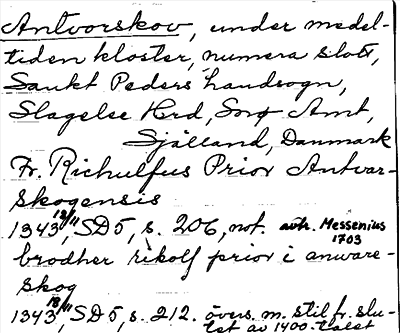 Antvorskov, under medel-
tiden kloster, numera slott,
Sankt Peders landsogn,
Slagelse Hrd, Sorø Amt,
Sjálland, Danmark
Fr. Richulfus Prior Antvar-
skogensis
1343 18/11, SD 5, s. 206, not. avtr. Messenius
1703
brodher rikolf prior i anware-
skog
1343 18/11, SD 5, s. 212. övers. m. stil fr. slu-
tet av 1400-talet